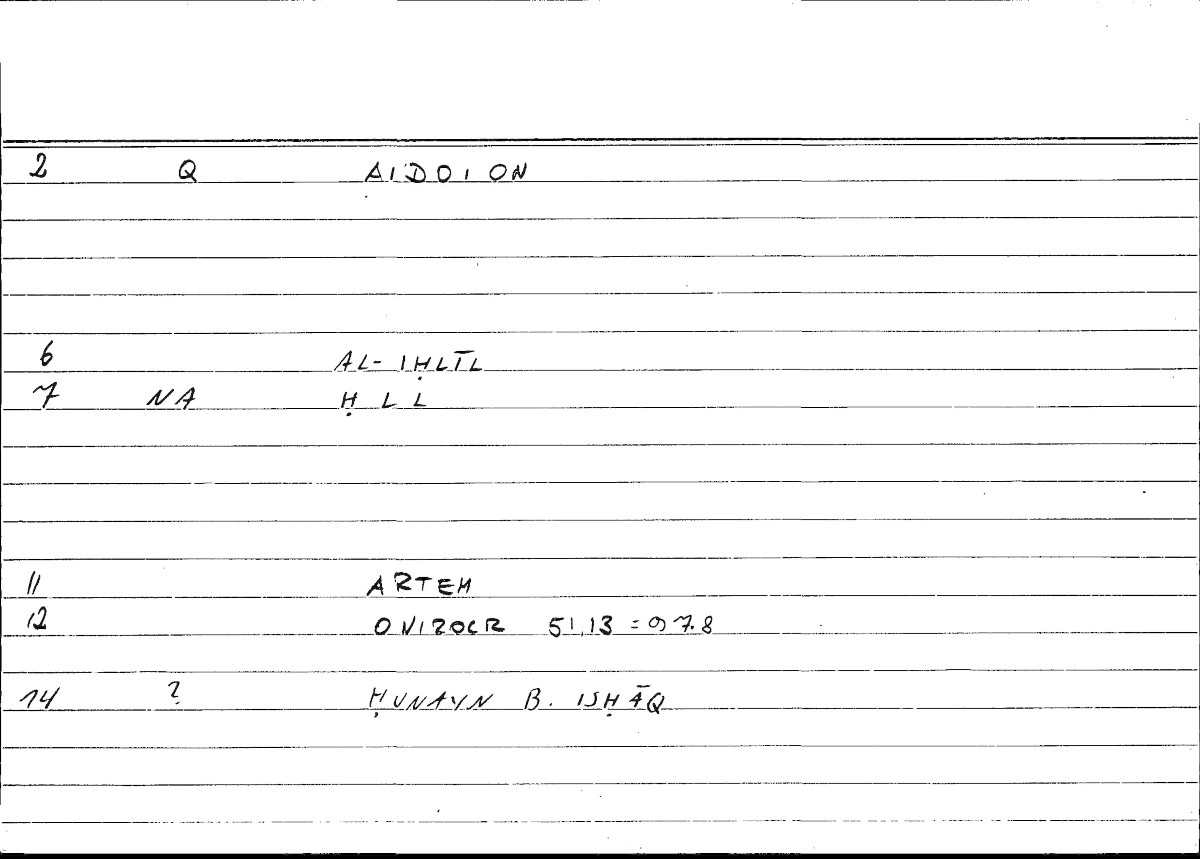 2 Q AIDOION
6 AL-IḤLĪL
7 NA Ḥ L L
11 ARTEM
12 ONIROCR 51,13 = 97.8
14 ? ḤUNAYN B. ISḤĀQ